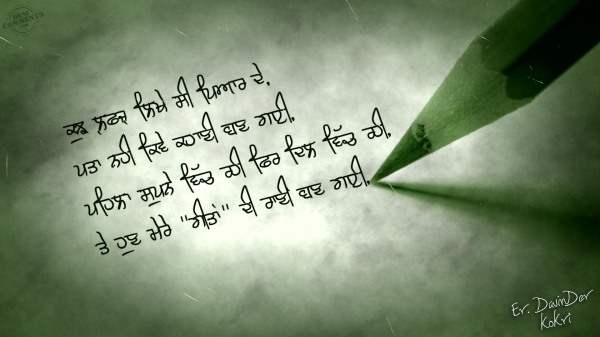 ਕੁਝ ਲਫਜ ਲਿਖੇ ਸੀ ਪਿਆਰ ਦੇ,
ਪਤਾ ਨਹੀ ਕਿਵੇ ਕਹਾਣੀ ਬਣ ਗਈ,
ਪਹਿਲਾ ਸੁਪਨੇ ਵਿੱਚ ਸੀ ਫਿਰ ਦਿਲ ਵਿੱਚ ਸੀ,
ਤੇ ਹੁਣ ਮੇਰੇ "ਗੀਤਾਂ" ਦੀ ਰਾਣੀ ਬਣ ਗਈ,
Er. DavinDer
KoKri